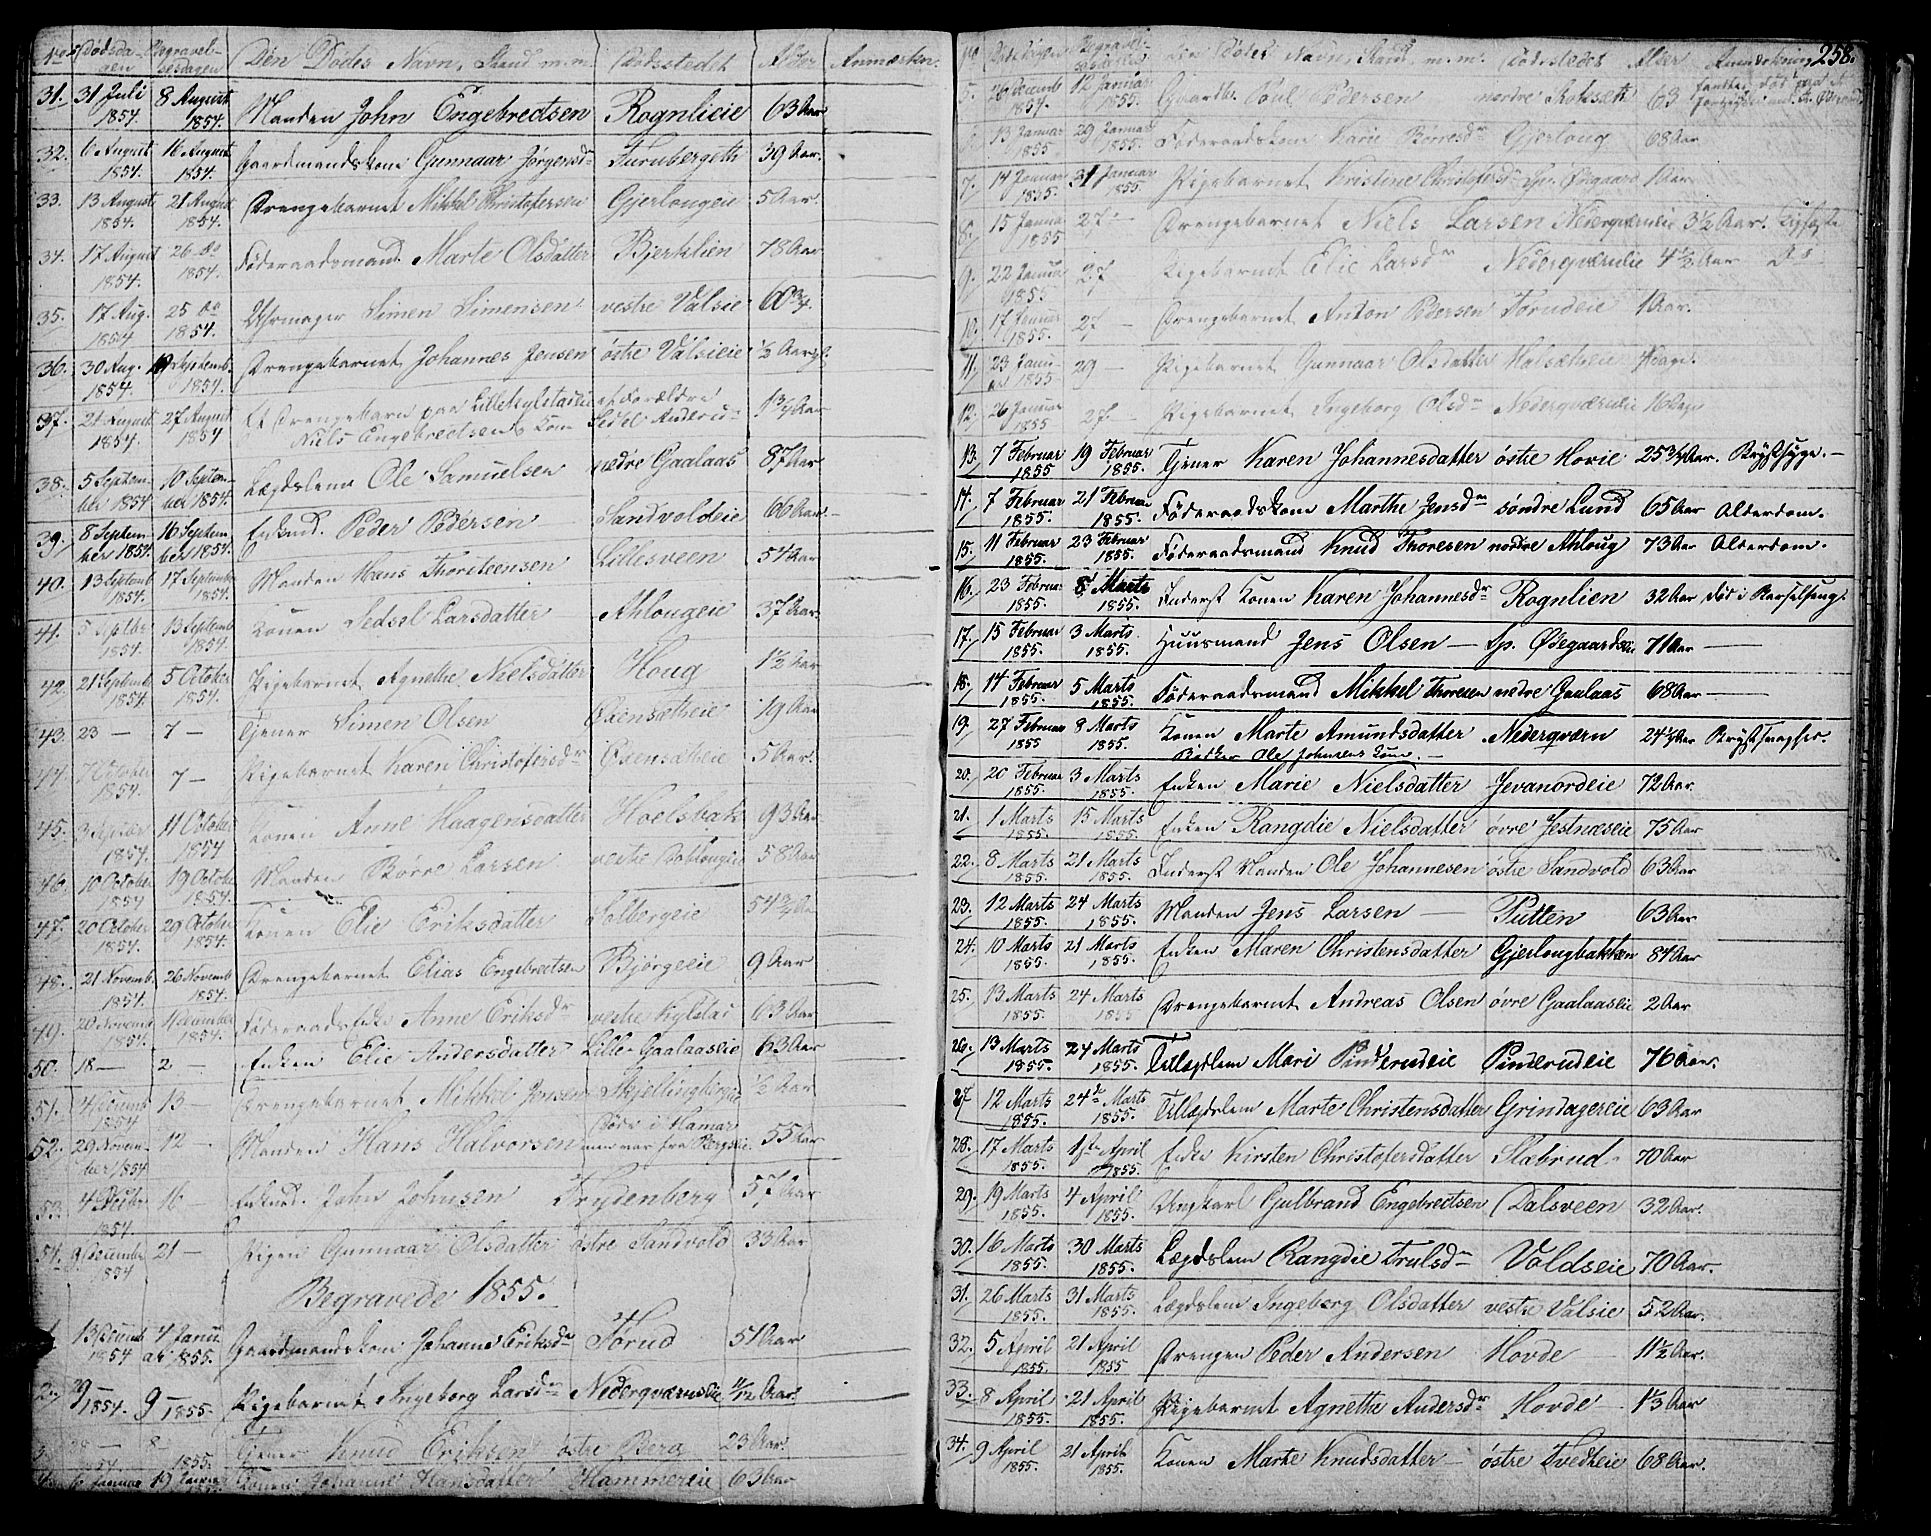 No Dødsdagen Begravelsesdagen Den Dødes Navn, Stand m.m. Dødsstedet Alder Anmærkn.
31. 31 Juli 1854. 8 August 1854. Manden John Engebredtsen Rognlieie 63 Aar
32. 6 August 1854. 16 August 1854. Gaardmandskone Gunnaar Jørgensdr Furubergeth 39 Aar.
33. 13 August 1854. 21 August 1854. Drengebarnet Mikkel Christofersen Gjerlougeie 5 Aar.
34. 17 August 1854. 26 do 1854. Føderaadsmand. Marte Olsdatter Bjerklien 78 Aar
35. 17 Aug. 1854 25 do 1854. Uhrmager Simen Simensen vestre Valseie 60 3/4.
36. 30 Aug. 1854. 19 Septemb. 1854. Drengebarnet Johannes Jensen østre Valsieie 1/2 Aar
37. 21 August 1854. 27 August 1854 Et Drengebarn paa Lillekylstadeie af Forældre
Niels Engebredtsen & Kone Sedsel Andersdr
38. 5 September 1854 10 September 1854. Lægdslem Ole Samuelsen nedre Gaalaas 87 Aar
39. 8 September 1854. 16 September 1854. Enkmd. Peder Pedersen Sandvoldeie 66 Aar
40. 13 Septemb 1854. 17 Septembr 1854. Manden Hans Thorsteensen Lillesveen 54 Aar
41. 5 Septbr 1854. 13 Septemb 1854. Konen Sedsel Larsdatter Ahlougeie 37 Aar.
42. 21 Septemb 1854. 5 October 1854. Pigebarnet Agnethe Nielsdatter Houg 1 1/2 Aar
43. 23 — 7 — Tjener Simen Olsen Oxensætheie 19 Aar
44. October 1854. 7 — Pigebarnet Karen Christofersdr Oxensætheie 5 Aar.
45. 1854. 11 October 1854 Konen Anne Haagensdatter Hoelsbak 93 Aar
46. 10 October 1854 19 October 1854. Manden Børre Larsen vestre 58 Aar
47. 20 October 1854. 29 October 1854. Konen Elie Eriksdatter Solbergeie 54 3/4 Aar
48. 21 Novemb 1854. 26 Novemb 1854. Drengebarnet Elias Engebretsen Bjørgeeie 9 Aar
49. 20 Novemb 1854. 4 December 1854. Føderaadsenke Anne Eriksdr vestre Kylstad 63 Aar
50. 18 — 2 — Enken Elie Andersdatter Lille Gaalaaseie 63 Aar
51. 4 Decemb 1854 13 — Drengebarnet Mikkel Jensen Skjellingbergeie 1/2 Aar
52. 29 November 1854 12 — Manden Hans Halvorsen Døde i Hamar men var fra Bergseie 55 Aar
53. 4 Decbr 1854. 16 — Enkmd. John Johnsen Frydenberg 57 Aar
54. 9 December 1854 21 — Pigen Gunnaar Olsdatter østre Sandvold 33 Aar
Begravede 1855.
1 13 Decemb 1854 4 Januar 1855. Gaardmandskone Johanne Eriksdr Torud 51 Aar
2. 29 — 1854. 9 — 1855. Pigebarnet Ingeborg Larsdr Nederqværnseie 11/12 Aar.
3. 28 — 1854. 8 — 1855. Tjener Knud Eriksen østre Berg 23 Aar.
Januar 19 Januar Konen Johanne Hansdatter Hammereie 63 Aar
258.
No Dødsdagen Begravelsesdagen Den Dødes Navn, Stand m.m. Dødsstedet Alder Anmærkning
5. 26 Decemb 1854. 12 Januar 1855. Gaardb. Poul Pedersen nordre Kolsæth 63 fandtes død
6. 13 Januar 1855 29 Januar 1855. Føderaadskone Karie Børresdr Gjerloug 68 Aar
7. 14 Januar 1855. 31 Januar 1855. Pigebarnet Kristine Christofersdr Sp. Ødegaard 1 Aar
8. 15 Januar 1855 27 — Drengebarnet Niels Larsen Nederqværneie 3 1/2 Aar.
9. 22 Januar 1855 27 Pigebarnet Elie Larsdr Nederqværneie 4 1/2 Aar Do
10. 17 Januar 1855. 27 — Drengebarnet Anton Pedersen Torudeie 1 Aar.
11. 23 Januar 1855 29 — Pigebarnet Gunnaar Olsdatter Holsætheie Dage
12. 26 Januar 1855 27. — Pigebarnet Ingeborg Olsdr Nederqværneie 16 Dage
13. 7 Februar 1855 19 Februar 1855. Tjener Karen Johannesdatter østre Hovie 25 3/4 Aar. Brystsyge. —
14. 7 Februar 1855. 21 Februar 1855. Føderaadskone Marthe Jensdr søndre Lund 65 Aar Alderdom.
15. 11 Februar 1855. 23 Februar 1855. Føderaadsmand Knud Thoresen nedre Ahloug 73 Aar Alderdom.
16. 23 Februar 1855. 8 Marts 1855. Inderst Konen Karen Johannesdr Rognlien 32 Aar Død i Barselseng.
17. 15 Februar 1855. 3 Marts 1855. Huusmand Jens Olsen — Sp. Ødegaardseie 71 Aar —
18. 14 Februar 1855. 5 Marts 1855. Føderaadsmand Mikkel Thoresen nedre Gaalaas 68 Aar —
19. 27 Februar 1855 8 Marts 1855. Konen Marte Amundsdatter Nederqværn 24 1/2 Aar
Bødker Ole Johnsens Kone. —
20. 20 Februar 1855. 3 Marts 1855. Enken Marie Nielsdatter Jevanordeie 72 Aar.
21. 1 Marts 1855. 15 Marts 1855. Enken Rangdie Nielsdatter øvre Jestnæseie 75 Aar
22. 8 Marts 1855. 21 Marts 1855. Inderst Manden Ole Johannesen østre Sandvold 63 Aar
23. 12 Marts 1855. 24 Marts 1855. Manden Jens Larsen — Putten 63 Aar
24. 10 Marts 1855. 21 Marts 1855. Enken Maren Christensdatter Gjerlougbakken 84 Aar
25. 13 Marts 1855. 24 Marts 1855 Drengebarnet Andreas Olsen øvre Gaalaaseie 2 Aar
26. 13 Marts 1855. 24 Marts 1855. Tillægdslem Mari Pinderudeie Pinderudeie 76 Aar.
27 12 Marts 1855. 24de Marts 1855. Tillægdslem Marte Christensdatter Grindagereie 63 Aar
28. 17 Marts 1855. 1ste April 1855. Enke Kirsten Christofersdatter Slæbrud 70 Aar
29. 19 Marts 1855. 4 April 1855. Ungkarl Gulbrand Engebredtsen Dalsveen 32 Aar.
30. 16 Marts 1855. 30 Marts 1855. Lægdslem Rangdie Trulsdr Voldseie 70 Aar.
31. 26 Marts 1855. 31 Marts 1855. Lægdslem Ingeborg Olsdatter vestre Valsie 52 Aar
32. 5 April 1855. 21 April 1855 Drengen Peder Andersen Hovde 11 1/2 Aar.
33. 8 April 1855. 21 April 1855. Pigebarnet Agnethe Andersdr Hovde 13 Aar
34. 9 April 1855. 21 April 1855. Konen Marte Knudsdatter — østre Tvedteie 68 Aar.